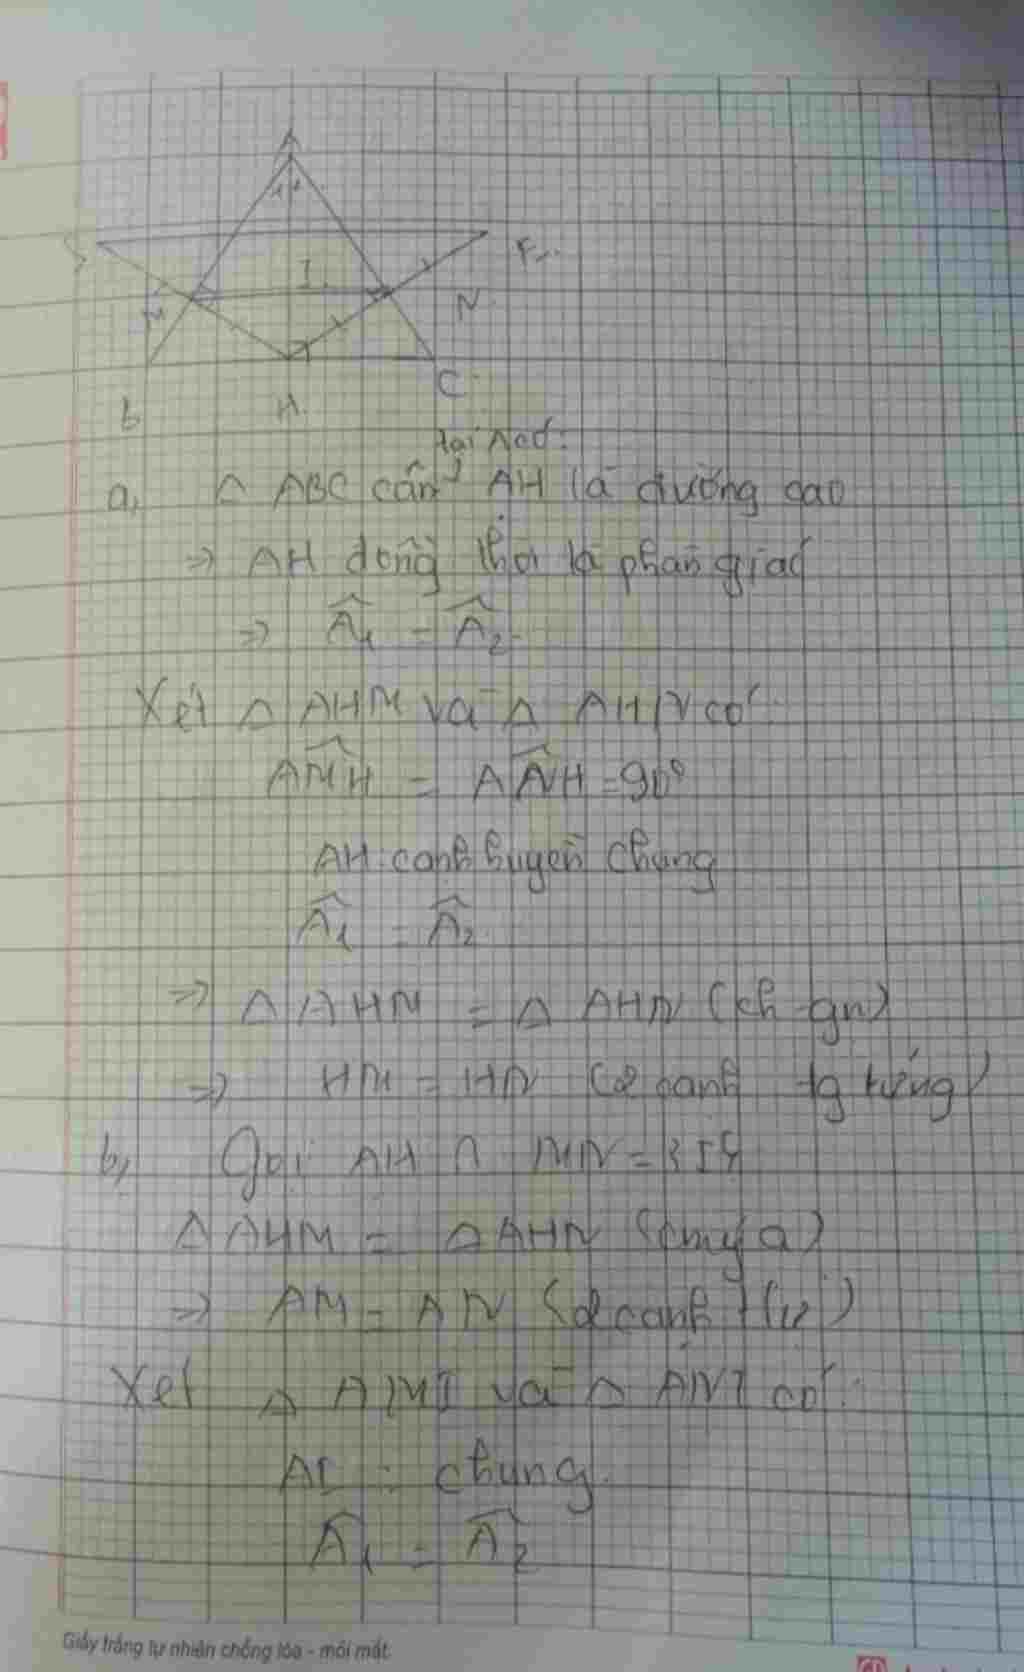 A
1 2
F
I
M
N
C
b
H
tại A có:
a, △ ABC cân AH là đường cao
=> AH đồng thời là phân giác
=> Â1 = Â2
Xét △ AHM và △ AHN có:
AM̂H = AN̂H = 90°
AH: cạnh huyền chung
Â1 = Â2
=> △ AHM = △ AHN (ch - gn)
=> HM = HN (2 cạnh tg ứng)
b, Gọi AH ∩ MN = {I}
△ AHM = △ AHN (cmý a)
=> AM = AN (2 cạnh tứ)
Xét △ AMI và △ ANI có:
AI: chung
Â1 = Â2
Giấy trắng tự nhiên chống lóa - mỏi mắt